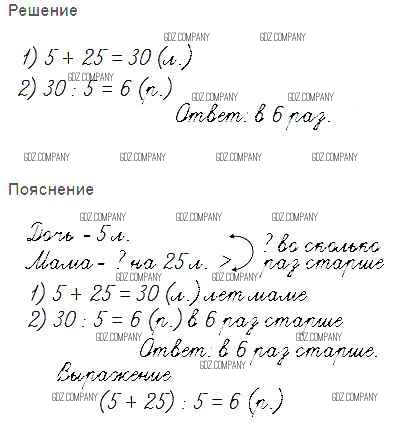 Решение
GDZ.COMPANY GDZ.COMPANY
1) 5 + 25 = 30 (л.)
GDZ.COMPANY
2) 30 : 5 = 6 (п.)
GDZ.COMPANY GDZ.COMPANY
Ответ: в 6 раз.
GDZ.COMPANY GDZ.COMPANY GDZ.COMPANY GDZ.COMPANY
Пояснение
GDZ.COMPANY GDZ.COMPANY GDZ.COMPANY
Дочь - 5 л.
? во сколько
Мама - ? на 25 л. >
раз старше
GDZ.COMPANY GDZ.COMPANY GDZ.COMPANY
1) 5 + 25 = 30 (л.) лет маме
GDZ.COMPANY GDZ.COMPANY GDZ.COMPANY
2) 30 : 5 = 6 (п.) в 6 раз старше
GDZ.COMPANY GDZ.COMPANY GDZ.COMPANY
Ответ: в 6 раз старше.
GDZ.COMPANY
Выражение
GDZ.COMPANY GDZ.COMPANY
(5 + 25) : 5 = 6 (п.)